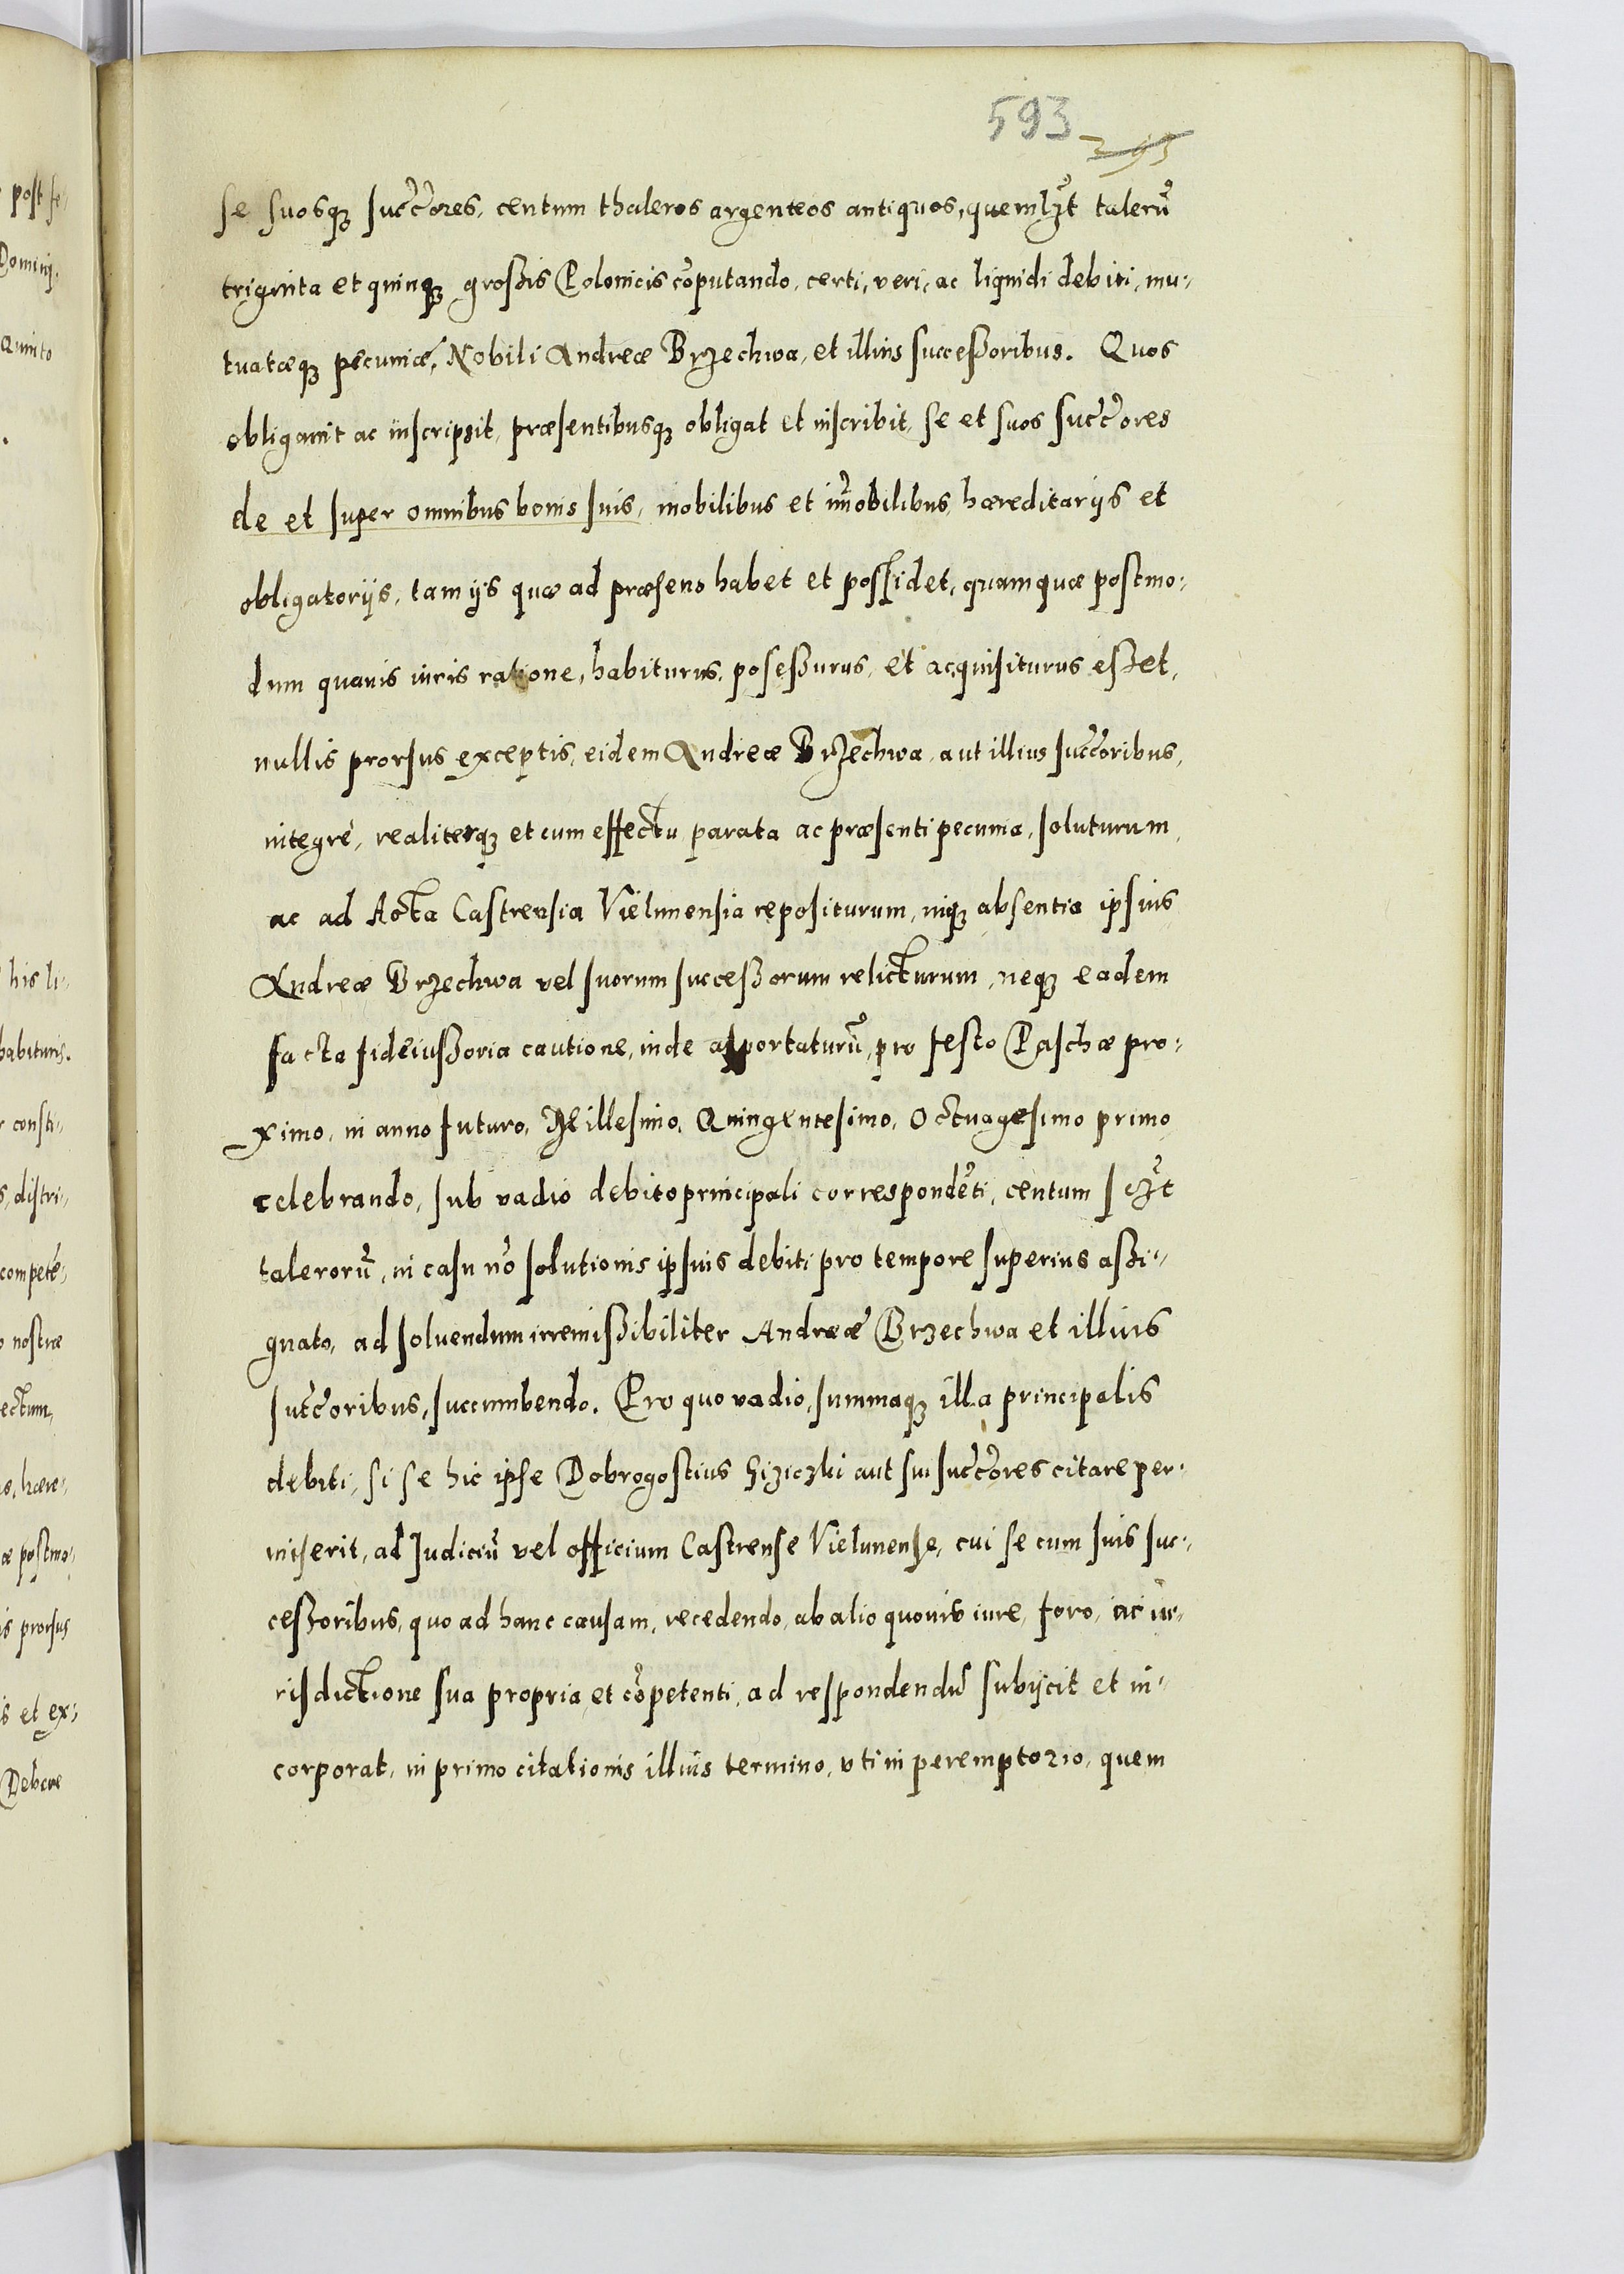 593
393
se suosq; succ̃ores, centum thaleros argenteos antiquos, quemlȝt talerũ
triginta et quinq; großis Polonicis cõputando, certi, veri, ac liquidi debiti, mu-
tuatæq; pecuniæ, Nobili Andreæ Brzechwa, et illius succeßoribus. Quos
obligauit ac inscripsit, præsentibusq; obligat et inscribit, se et suos succ̃ores
de et super omnibus bonis suis, mobilibus et im̃obilibus, hæreditarijs et
obligatorijs, tam ijs quæ ad præsens habet et possidet, quam quæ postmo-
dum quauis iuris ratione, habiturus, poseßurus, et acquisiturus eßet,
nullis prorsus exceptis, eidem Andreæ Brzechwa, aut illius succ̃oribus,
integrè, realiterq; et cum effectu, parata ac præsenti pecunia, soluturum,
ac ad Acta Castrensia Vielunensia repositurum, inq; absentia ipsius
Andreæ Brzechwa vel suorum succeßorum relicturum, neq; eadem
facta fideiußoria cautione, inde asportaturũ, pro festo Paschæ pro-
ximo, in anno futuro, Millesimo, Quingentesimo, Octuagesimo primo
celebrando, sub vadio debito principali correspondẽti, centum sczt
talerorũ, in casu nõ solutionis ipsius debiti pro tempore superius aßi-
gnato, ad soluendum irremißibiliter Andreæ Brzechwa et illius
succ̃oribus, succumbendo. Pro quo vadio, summaq; illa principalis
debiti, si se hic ipse Dobrogostius Giziczki aut sui succ̃ores citare per-
miserit, ad Judiciũ vel officium Castrense Vielunense, cui se cum suis suc-
ceßoribus, quo ad hanc causam, recedendo, ab alio quouis iure, foro, ac iu-
risdictione sua propria et cõpetenti, ad respondendũ subijcit et in-
corporat, in primo citationis illius termino, vti in peremptorio, quem
post fe-
Domini,
Quinto
his li-
habiturus.
consti-
s, distri-
compete-
nostræ
ectum,
hære-
æ postmo-
is prorsus
is et ex-
Debere